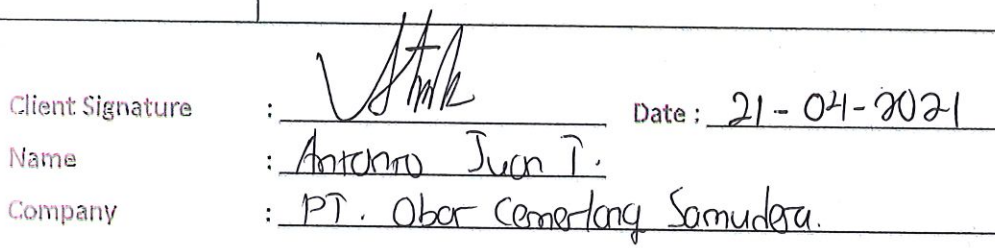 Client Signature : Date : 21-04-2021
Name : Antonio Juan T.
Company : PT. Obor Cemerlang Samudera.